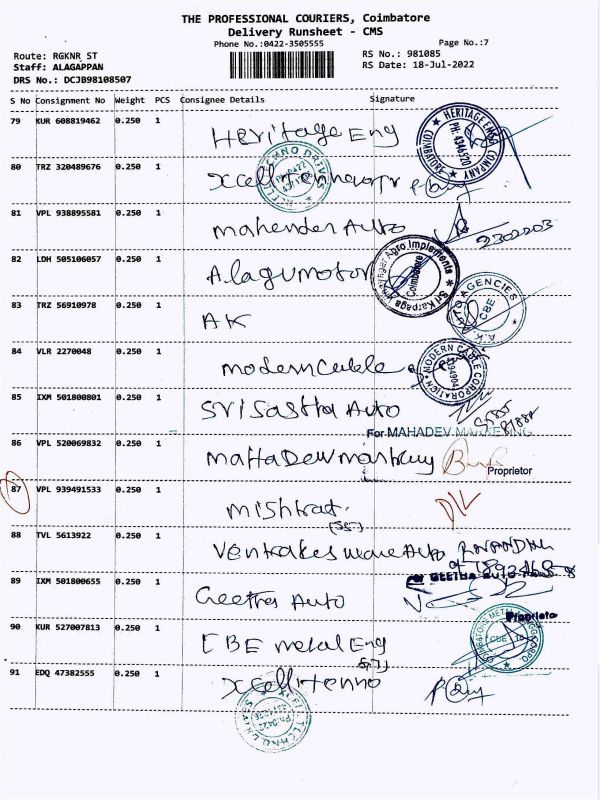 THE PROFESSIONAL COURIERS, Coimbatore
Delivery Runsheet - CMS
Phone No.:0422-3505555
Page No.:7
Route: RGKNR_ST
RS No.: 981085
Staff: ALAGAPPAN
RS Date: 18-Jul-2022
DRS No.: DCJB98108507
S No Consignment No Weight PCS Consignee Details Signature
79 KUR 608819462 0.250 1 Heritage Eng
HERITAGE ENGG COMPANY COIMBATORE PH: 4346920
80 TRZ 320489676 0.250 1
81 VPL 938895581 0.250 1 Mahender Auto
2302203
82 LDH 505106057 0.250 1 Alagumotor
Sri Karpaga Vinayagar Agro Implements Coimbatore
83 TRZ 56910978 0.250 1 AK
A.K. AUTO AGENCIES CBE
84 VLR 2270048 0.250 1 Modern Cable
MODERN CABLE CORPORATION
85 IXM 501800801 0.250 1 Sri Sastha Auto
For MAHADEV MARKETING
86 VPL 520069832 0.250 1
Proprietor
87 VPL 939491533 0.250 1
88 TVL 5613922 0.250 1
89 IXM 501800655 0.250 1 Geetha Auto
90 KUR 527007813 0.250 1 CBE metal Eng
91 EDQ 47382555 0.250 1